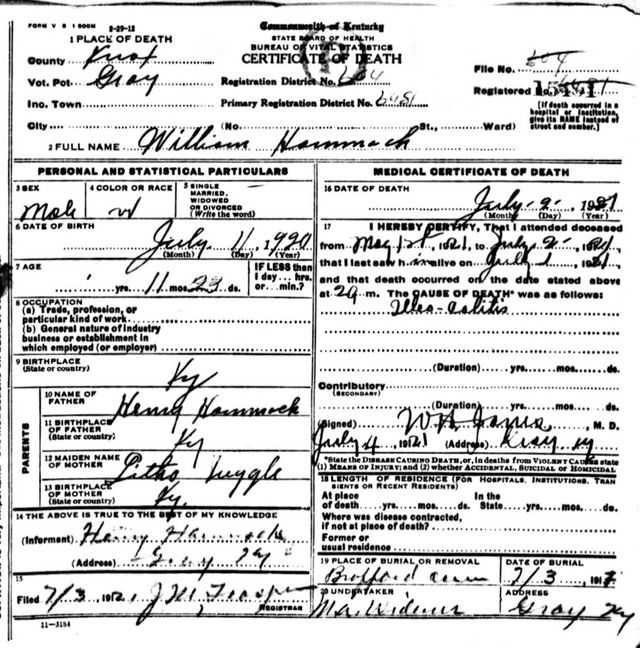 FORM V S 1 500M 2-29-12
Commonwealth of Kentucky
STATE BOARD OF HEALTH
BUREAU OF VITAL STATISTICS
CERTIFICATE OF DEATH
1 PLACE OF DEATH
County Knox
Vot. Pct Gray
Inc. Town
City (No. St., Ward)
Registration District No. 604
Primary Registration District No. 6481
File No.
Registered No.
[If death occurred in a hospital or institution, give its NAME instead of street and number.]
2 FULL NAME William Hammack
PERSONAL AND STATISTICAL PARTICULARS
3 SEX
Male
4 COLOR OR RACE
W
5 SINGLE
MARRIED,
WIDOWED
OR DIVORCED
(Write the word)
6 DATE OF BIRTH
July 11, 1920
(Month) (Day) (Year)
7 AGE
yrs. 11 mos. 23 ds.
IF LESS than
1 day... hrs.
or ... min.?
8 OCCUPATION
(a) Trade, profession, or
particular kind of work
(b) General nature of industry
business or establishment in
which employed (or employer)
9 BIRTHPLACE
(State or country)
Ky
PARENTS
10 NAME OF
FATHER
Henry Hammack
11 BIRTHPLACE
OF FATHER
(State or country)
Ky
12 MAIDEN NAME
OF MOTHER
Tuggle
13 BIRTHPLACE
OF MOTHER
(State or country)
Ky.
14 THE ABOVE IS TRUE TO THE BEST OF MY KNOWLEDGE
(Informant) Henry Hammack
(Address) Gray Ky
15
Filed 7/3, 191 J M
REGISTRAR
11-3184
MEDICAL CERTIFICATE OF DEATH
16 DATE OF DEATH
July 2, 1921
(Month) (Day) (Year)
17 I HEREBY CERTIFY, That I attended deceased
from May 1921, to July 2, 1921
that I last saw h m alive on July 1, 1921
and that death occurred on the date stated above
at 2 a m. The CAUSE OF DEATH* was as follows:
Ileo-colitis
(Duration) yrs. mos. ds.
Contributory
(SECONDARY)
(Duration) yrs. mos. ds.
(Signed) W A Jones, M. D.
July 4 1921 (Address) Gray Ky
*State the DISEASE CAUSING DEATH, or, in deaths from VIOLENT CAUSES state
(1) MEANS OF INJURY; and (2) whether ACCIDENTAL, SUICIDAL OR HOMICIDAL
18 LENGTH OF RESIDENCE (FOR HOSPITALS, INSTITUTIONS, TRAN
SIENTS OR RECENT RESIDENTS)
At place In the
of death yrs. mos. ds. State yrs. mos. ds.
Where was disease contracted,
if not at place of death?
Former or
usual residence
19 PLACE OF BURIAL OR REMOVAL
DATE OF BURIAL
7/3, 191
20 UNDERTAKER
ADDRESS
Gray Ky